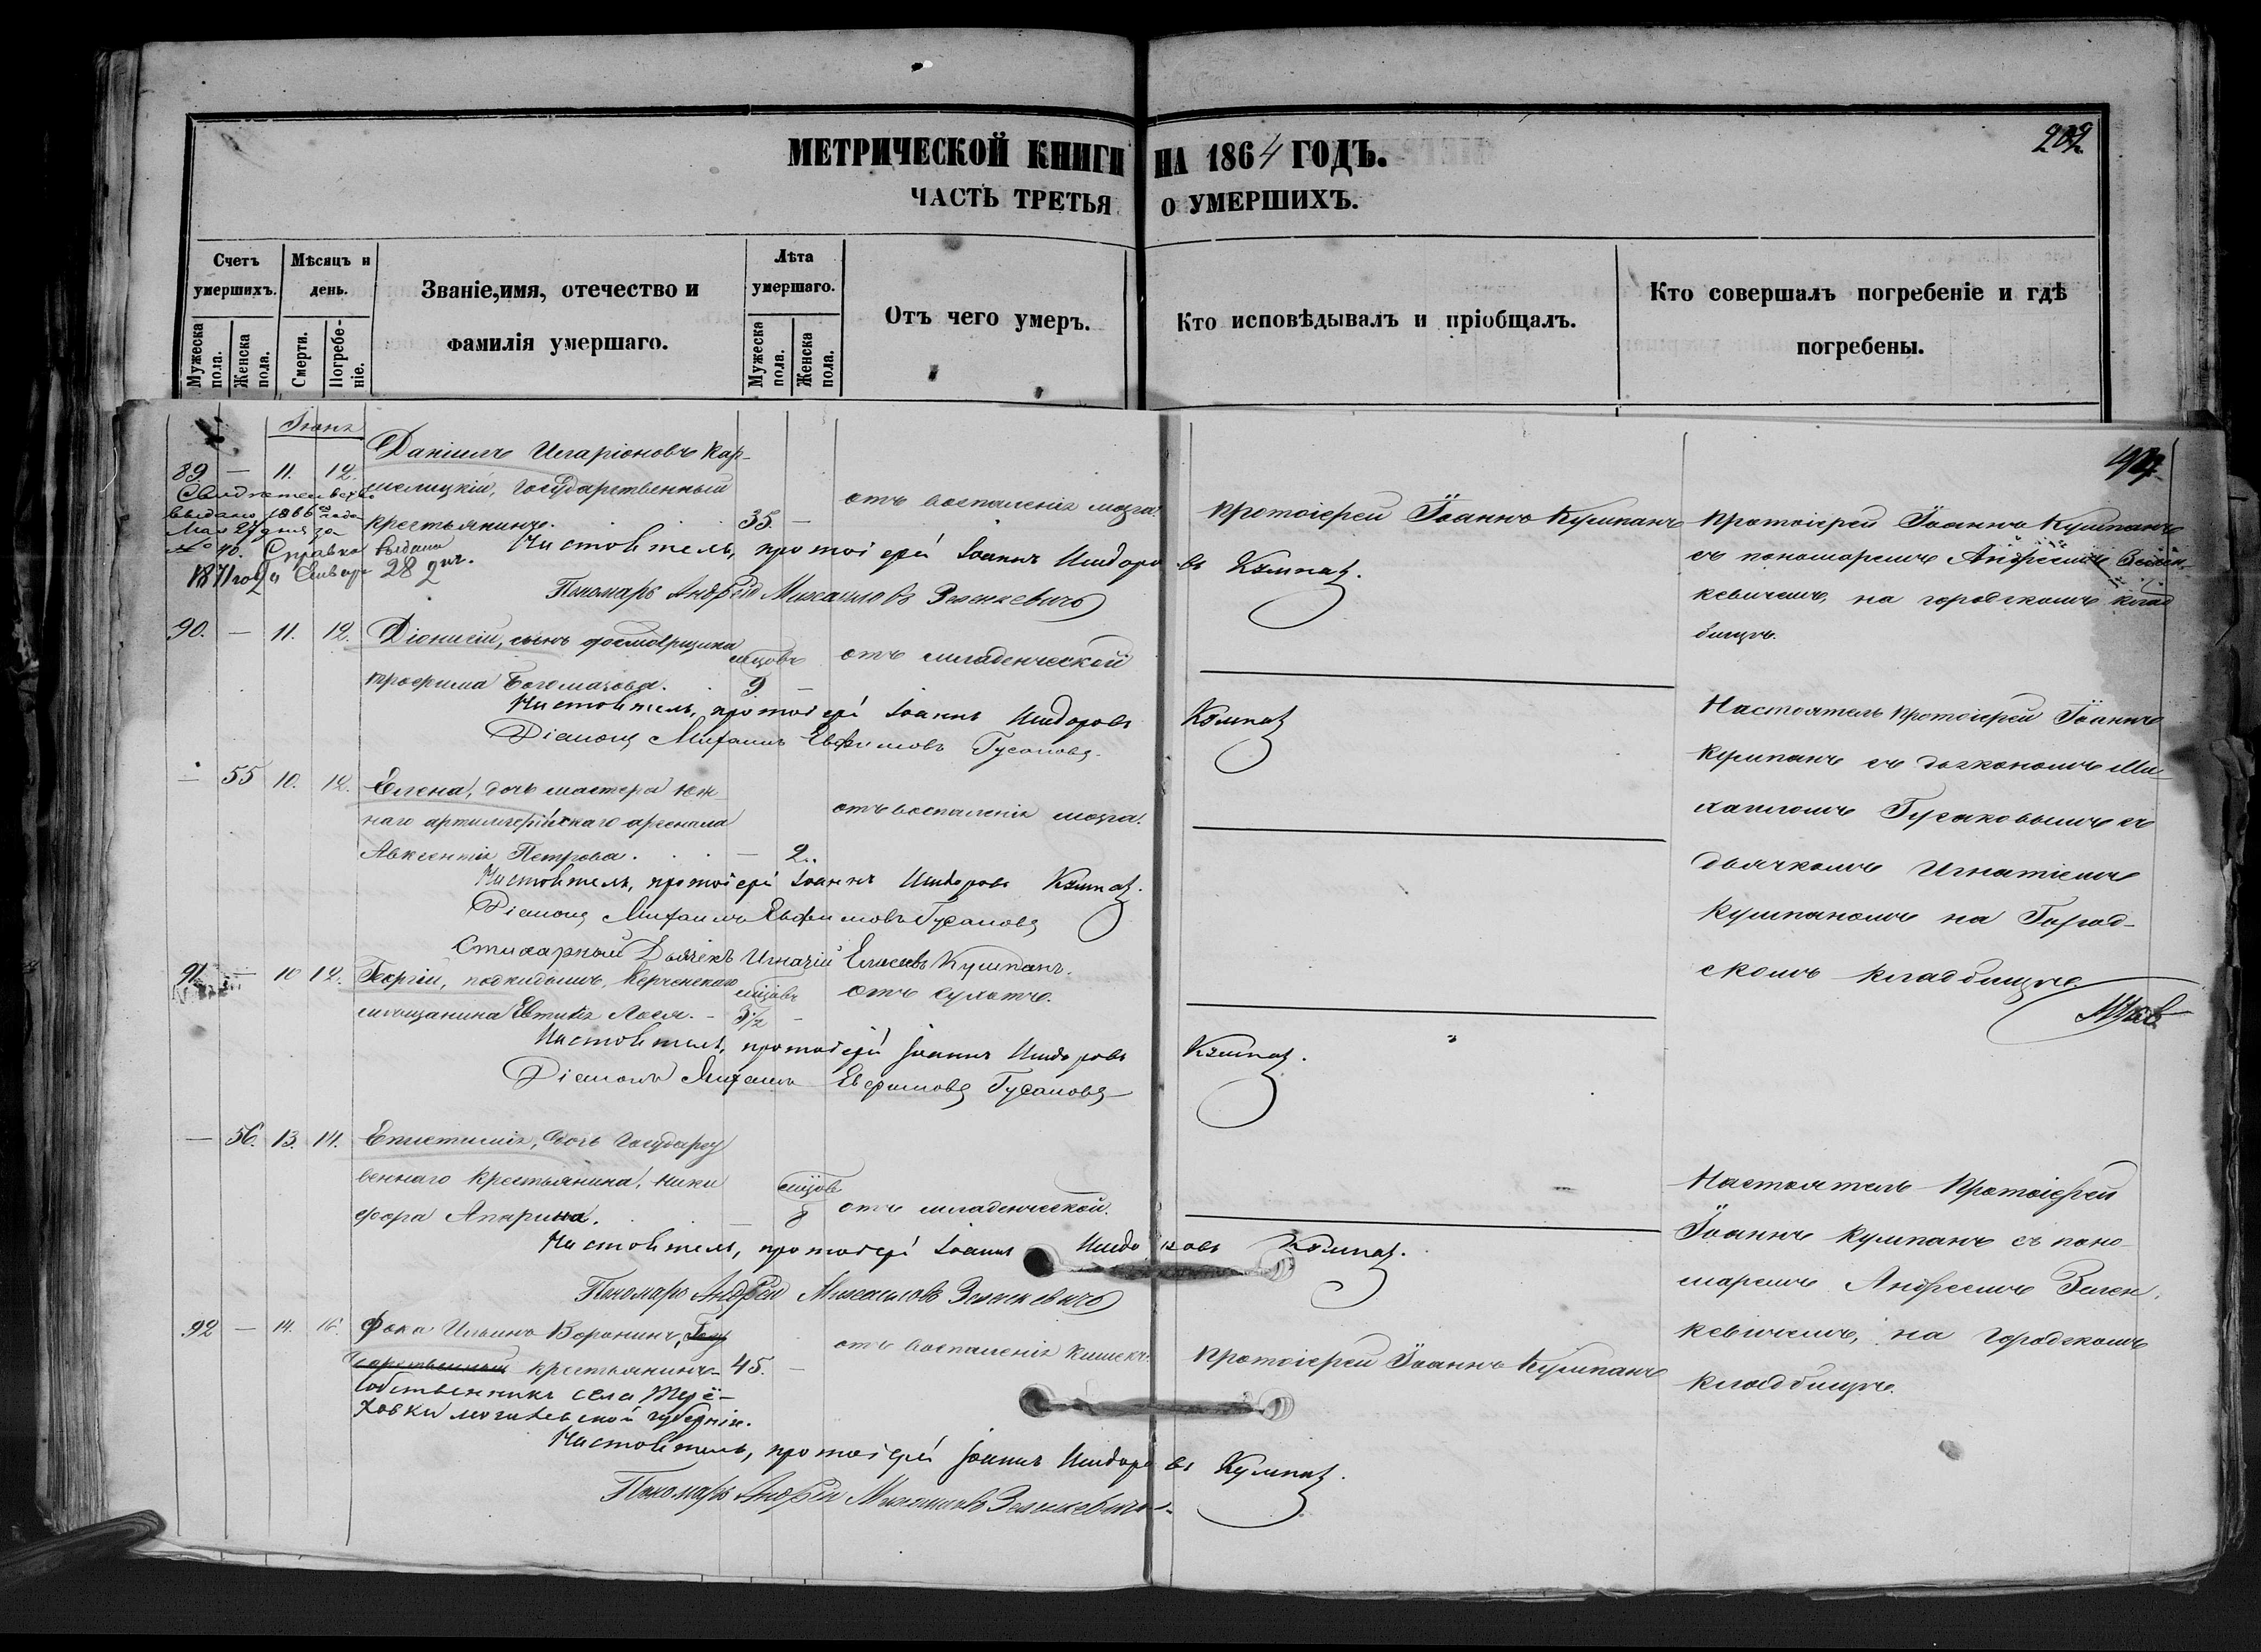 МЕТРИЧЕСКОЙ КНИГИ НА 1864 ГОДЪ.
202
ЧАСТЬ ТРЕТЬЯ О УМЕРШИХЪ.
Счетъ умершихъ.
Мужеска пола.
Женска пола.
Мѣсяцъ и день.
Смерти.
Погребеніе.
Званіе, имя, отечество и
фамилія умершаго.
Лѣта умершаго.
Мужеска пола.
Женска пола.
Отъ чего умеръ.
Кто исповѣдывалъ и пріобщалъ.
Кто совершалъ погребеніе и гдѣ
погребены.
89. — 11. 12.
Свидетельство
выдано 1866 года
Мая 27 дня за
№ 10. Справка выдана
1871 года Января 28 дня.
Даніилъ Иларіоновъ Кар-
мелицкій, Государственный
крестьянинъ. 35. —
отъ воспаленія мозга.
Протоіерей Іоаннъ Кумпанъ
Протоіерей Іоаннъ Кумпанъ
съ пономаремъ Андреемъ Зелен-
кевичемъ, на городскомъ клад
бищѣ.
Настоятель, протоіерей Іоаннъ Исидоровъ Кумпанъ.
Пономарь Андрей Михайловъ Зеленкевичъ
90. — 11. 12. Діонисій, сынъ
Трофима Богомазова. мцовъ 9. —
отъ младенческой
Настоятель, протоіерей Іоаннъ Исидоровъ Кумпанъ
Діаконъ Михаилъ Евфимовъ Гусаковъ.
Настоятель Протоіерей Іоаннъ
Кумпанъ съ діакономъ Ми-
хаиломъ Гусаковымъ съ
дьячкомъ Игнатіемъ
Кумпаномъ на Город-
скомъ кладбищѣ.
— 55 10. 12. Елена, дочь мастера Юж-
наго артиллерійскаго арсенала
Авксентія Петрова. — 2.
отъ воспаленія мозга.
Настоятель, протоіерей Іоаннъ Исидоровъ Кумпанъ.
Діаконъ Михаилъ Евфимовъ Гусаковъ
Стихарный Дьячекъ Игнатій Елисеевъ Кумпанъ.
91. — 10 12. Георгій, подкидышъ, Керченскаго
мѣщанина Евтихія Лося. мцовъ 3½ —
отъ сухотъ.
Настоятель, протоіерей Іоаннъ Исидоровъ Кумпанъ.
Діаконъ Михаилъ Евфимовъ Гусаковъ
— 56. 13. 14. Епистимія, дочь Государст
веннаго крестьянина, Ники
фора Апарина. — мцовъ 8
отъ младенческой.
Настоятель, протоіерей Іоаннъ Исидоровъ Кумпанъ.
Пономарь Андрей Михайловъ Зеленкевичъ
Настоятель Протоіерей
Іоаннъ Кумпанъ съ поно-
маремъ Андреемъ Зелен-
кевичемъ, на Городскомъ
кладбищѣ.
92 — 14. 16. Фока Ильинъ Воронинъ, Госу
дарственный крестьянинъ 45. —
собственникъ села
Могилевской губерніи.
отъ воспаленія кишекъ.
Протоіерей Іоаннъ Кумпанъ
Настоятель, протоіерей Іоаннъ Исидоровъ Кумпанъ.
Пономарь Андрей Михайловъ Зеленкевичъ